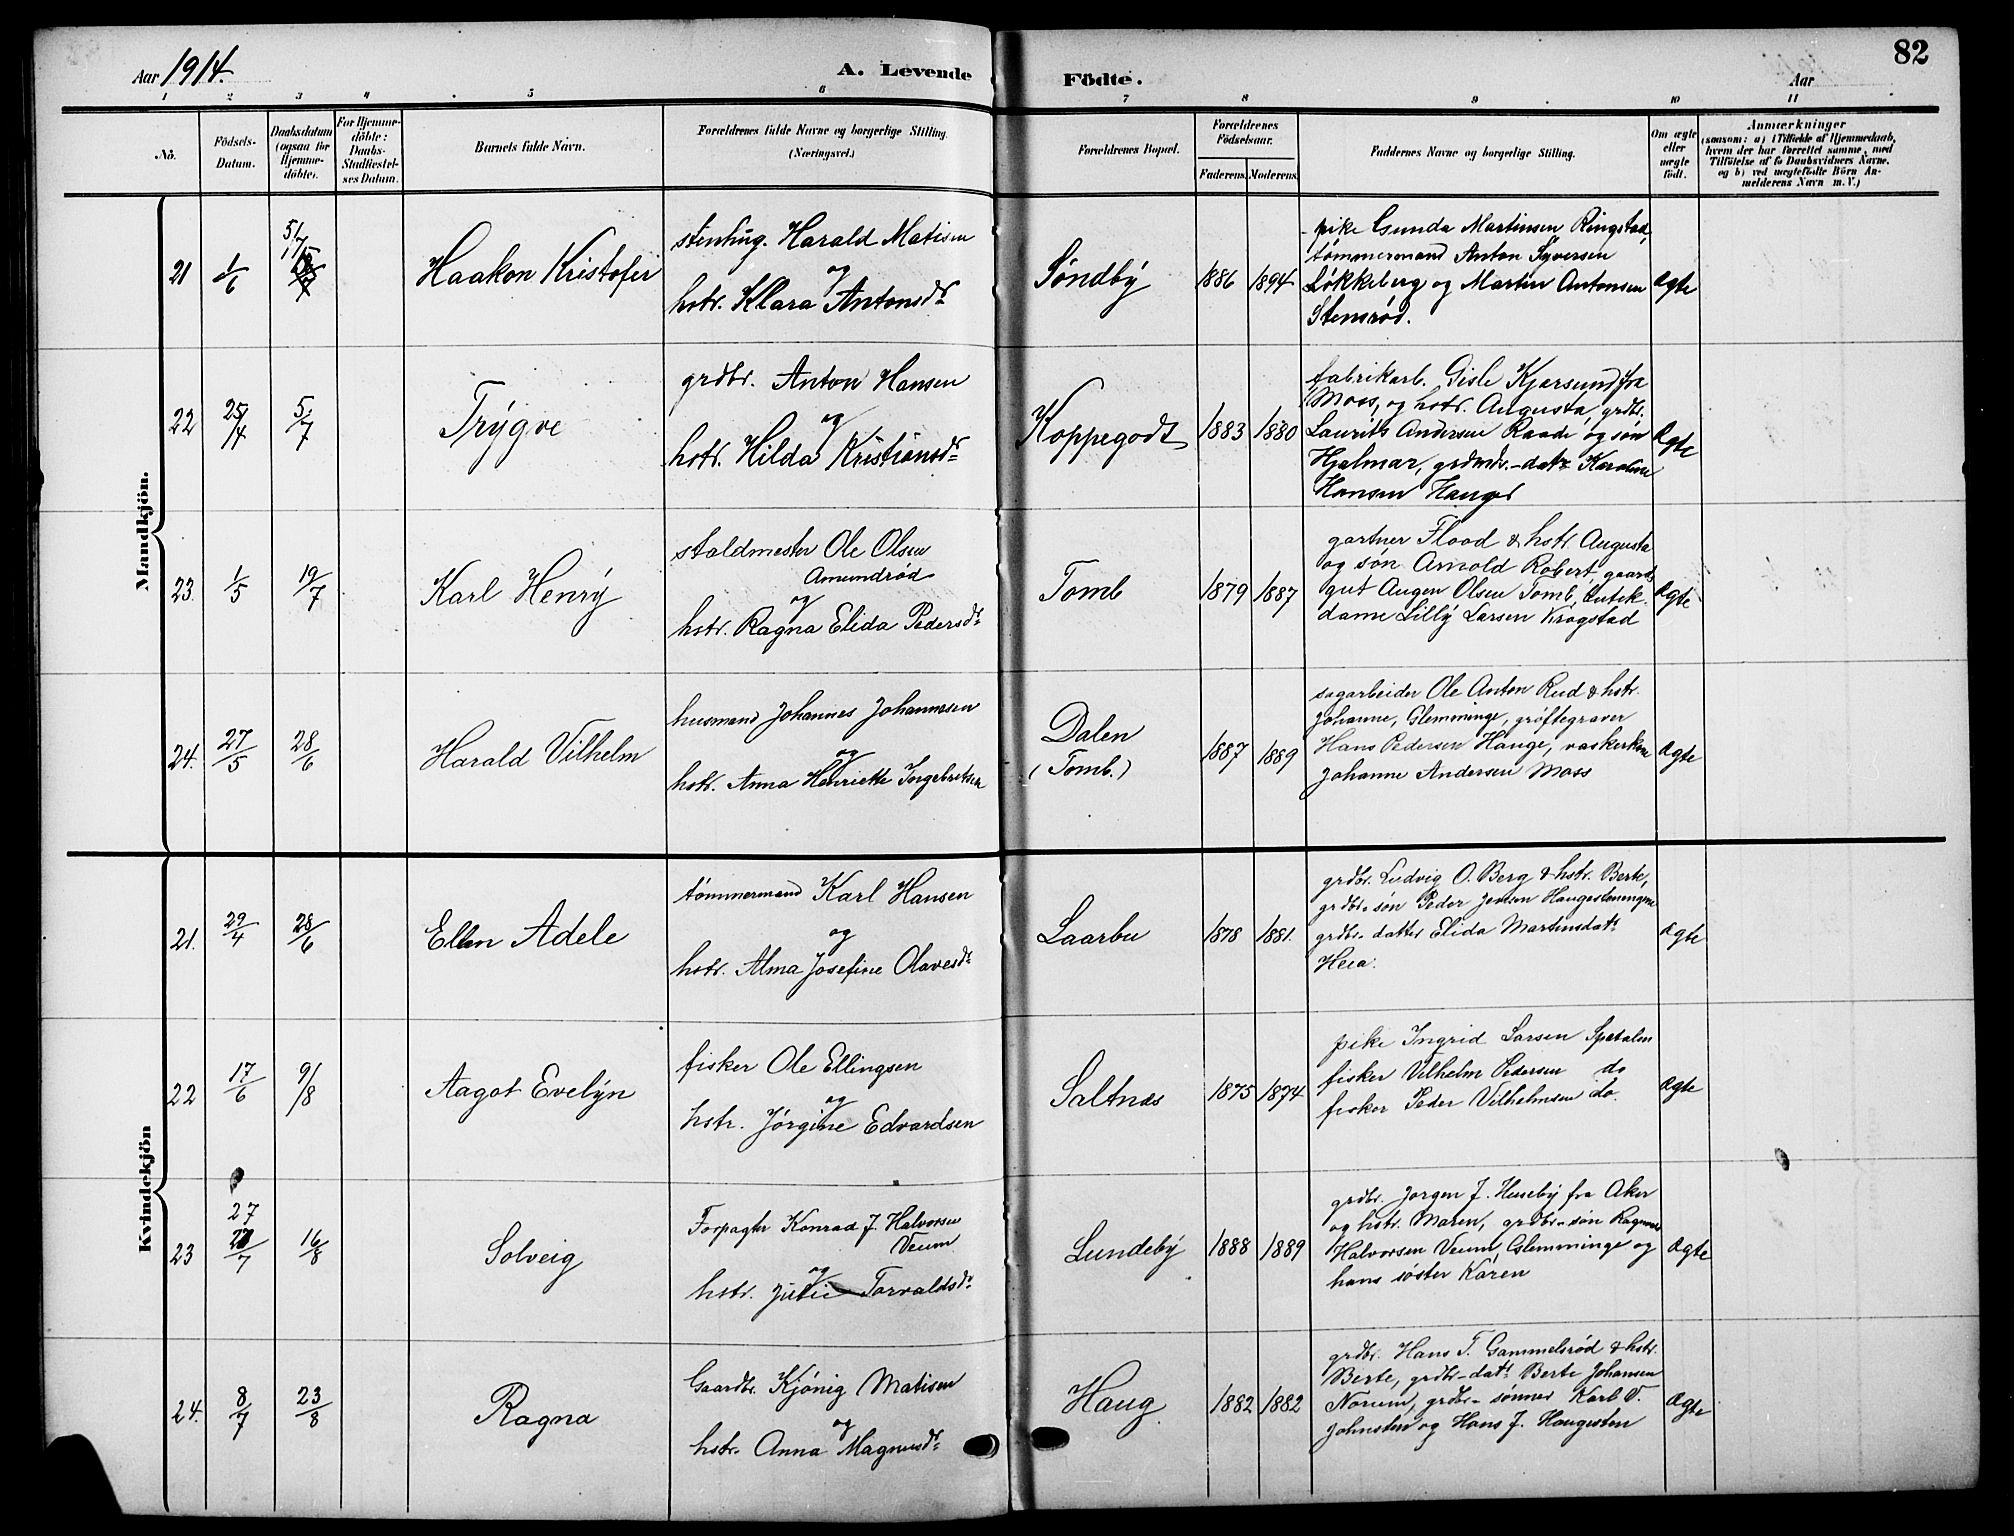 82
Aar 1914.
A. Levende Födte.
Aar
1 2 3 4 5 6 7 8 9 10 11
No.
Födsels-Datum.
Daabsdatum (ogsaa for Hjemme-döbte).
For Hjemme-döbte: Daabs-Stadfæstel-ses Datum.
Barnets fulde Navn.
Forældrenes fulde Navne og borgerlige Stilling.
(Næringsvei.)
Forældrenes Bopæl.
Forældrenes Födselsaar.
Faderens. Moderens.
Faddernes Navne og borgerlige Stilling.
Om ægte eller uægte födt.
Anmærkninger
(saasom: a) i Tilfælde af Hjemmedaab,
hvem der har forrettet samme, med
Tilföielse af to Daabsvidners Navne,
og b) ved uægtefödte Börn An-
melderens Navn m. V.)
Mandkjön.
21 1/6 5/7 Haakon Kristofer
stenhug. Harald Matisen
og
hstr. Klara Antonsdr
Søndby 1886 1894
pike Gunda Martinsen Ringstad,
tømmermand Anton Syversen
Løkkeberg og Martin Antonsen
Stensrød.
ægte
22 25/4 5/7 Trygve
grdbr. Anton Hansen
og
hstr. Hilda Kristiansdr
Koppegodt 1883 1880
fabrikarb. Gisle Kjørsund fra
Moss, og hstr. Augusta, grdbr.
Laurits Andersen Raade og søn
Hjalmar, grdbr.-datr Karoline
Hansen Haug
ægte
23. 1/5 19/7 Karl Henry
staldmester Ole Olsen
Amundrød
og
hstr. Ragna Elida Pedersdr
Tomb 1879 1887
gartner Flood & hstr. Augusta
og søn Arnold Robert, gaards
gut Augen Olsen Tomb, butik-
dame Lilly Larsen Krogstad
ægte
24. 27/5 28/6 Harald Vilhelm
husmand Johannes Johannesen
og
hstr. Anna Henriette Ingebretsen
Dalen
(Tomb.)
1887 1889
sagarbeider Ole Anton Rud & hstr.
Johanne, Glemminge, grøftegraver
Hans Pedersen Hauge, vaskerkone
Johanne Andersen Moss
ægte
Kvindekjön
21. 29/4 28/6 Ellen Adele
tømmermand Karl Hansen
og
hstr. Alma Josefine Olavesdr
Laarbu 1878 1881.
grdbr. Ludvig O. Berg & hstr. Berte,
grdbr.-søn Peder Jensen
grdbr.-datter Elida Martinsdatr
Heia.
ægte
22 17/6 9/8 Aagot Evelyn
fisker Ole Ellingsen
og
hstr. Jørgine Edvardsen
Saltnæs 1875 1874
pike Ingrid Larsen Spetalen
fisker Vilhelm Pedersen do
fisker Peder Vilhelmsen do.
ægte
23 27/7 16/8 Solveig
Forpagter Konrad J. Halvorsen
Veum
og
hstr. Julie Torvaldsdr
Lundeby 1888 1889
grdbr. Jørgen J. Huseby fra Aker
og hstr. Maren, grdbr.-søn Ragnvar
Halvorsen Veum, Glemminge og
hans søster Karen
ægte
24. 8/7 23/8 Ragna
Gaardbr. Kjønig Matisen
og
hstr. Anna Magnusdr
Haug 1882 1882
grdbr. Hans T. Gammelsrød & hstr.
Berte, grdbr-datr Berte Johansen
Norum, grdbr.-sønner Karl V.
Johnsten og Hans J. Haugesten
ægte